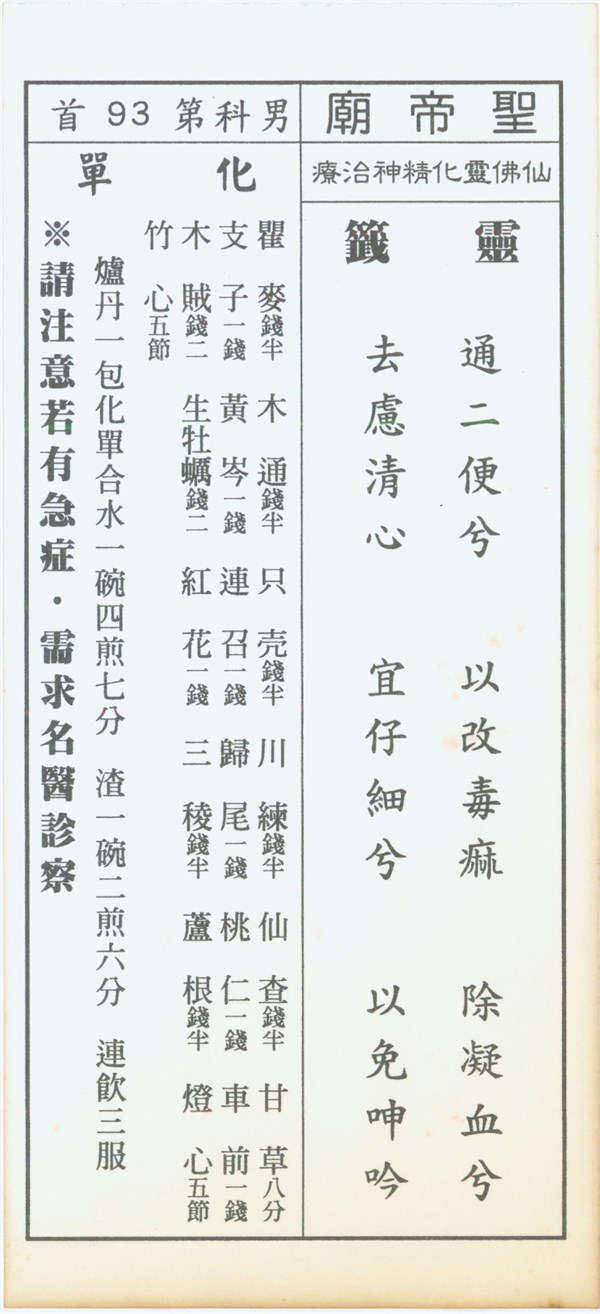 聖帝廟
仙佛靈化精神治療
靈籤
通二便兮 以改毒痳 除凝血兮
去慮清心 宜仔細兮 以免呻吟
男科第93首
化單
瞿麥錢半 木通錢半 只壳錢半 川練錢半 仙查錢半 甘草八分
支子一錢 黃岑一錢 連召一錢 歸尾一錢 桃仁一錢 車前一錢
木賊錢二 生牡蠣錢二 紅花一錢 三稜錢半 蘆根錢半 燈心五節
竹心五節
爐丹一包化單合水一碗四煎七分 渣一碗二煎六分 連飲三服
※請注意若有急症·需求名醫診察